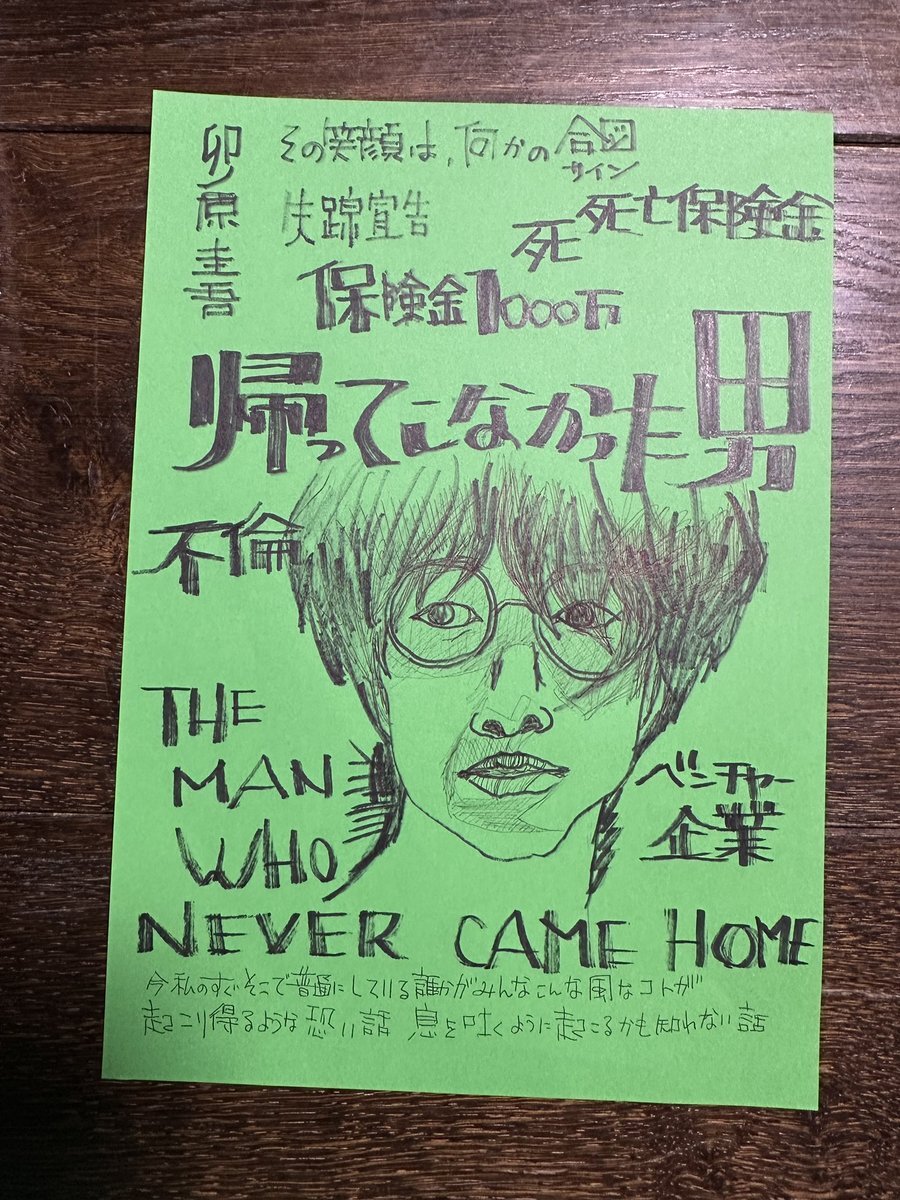 卯原圭吾
その笑顔は、何かの合図
サイン
失踪宣告
死 死亡保険金
保険金1000万
帰ってこなかった男
不倫
THE
MAN
WHO
ベンチャー
企業
NEVER CAME HOME
今私のすぐそこで普通にしている誰かがみんなこんな風なコトが
起こり得るような恐い話 息を吐くように起こるかも知れない話